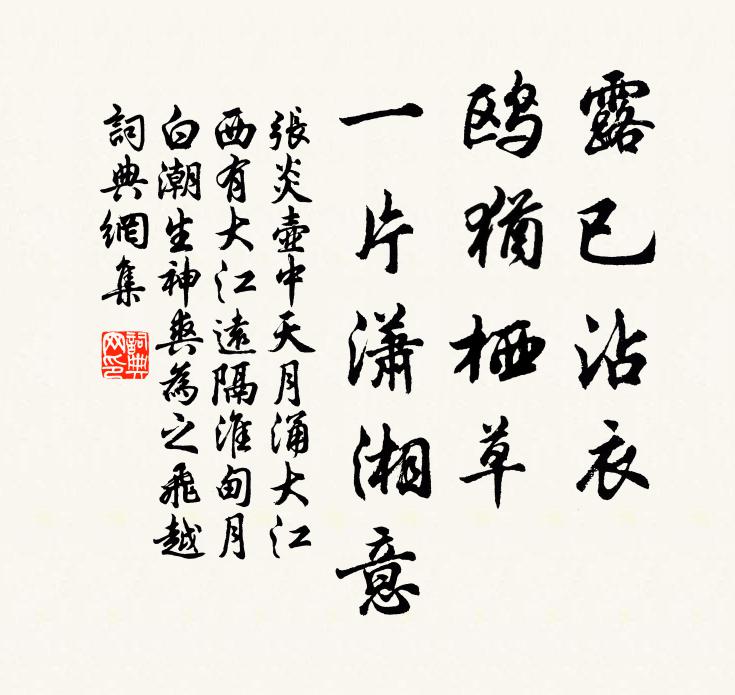 露已沾衣
鸥犹栖草
一片潇湘意
張炎壺中天月涌大江
西有大江遠隔淮甸月
白潮生神爽為之飛越
詞典網集
詞典
网印